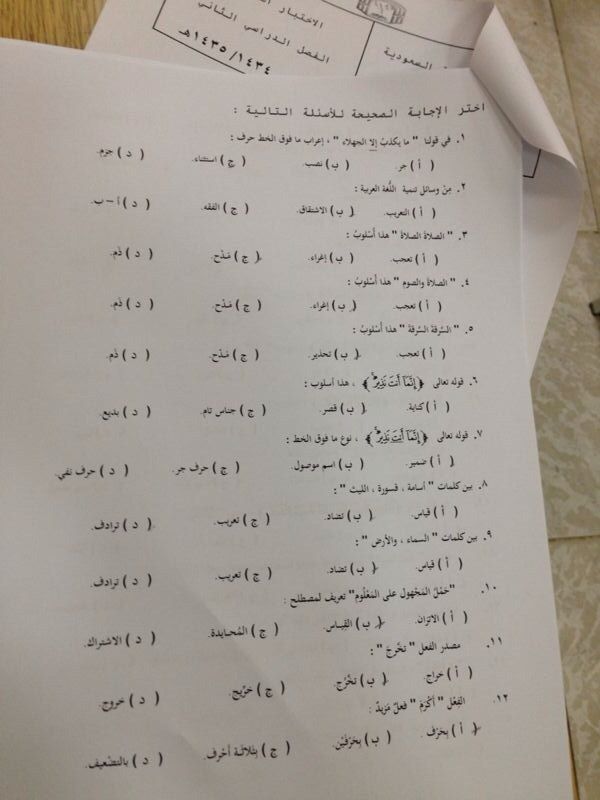 الاختبار
الفصل الدراسي الثاني
١٤٣٤/ ١٤٣٥هـ
السعودية
اختر الإجابة الصحيحة للأسئلة التالية :
١. في قولنا " ما يكذبُ إلا الجهلاء " ، إعراب ما فوق الخط حرف :
( أ ) جر. ( ب ) نصب. ( ج ) استثناء. ( د ) جزم.
٢. مِنْ وسائل تنمية اللُّغة العربية :
( أ ) التعريب. ( ب ) الاشتقاق. ( ج ) الفقه. ( د ) أ – ب.
٣. " الصلاةَ الصلاةَ " هذا أُسْلوبُ :
( أ ) تعجب. ( ب ) إغراء. ( ج ) مَدْح. ( د ) ذَم.
٤. " الصلاةَ والصومَ " هذا أُسْلوبُ :
( أ ) تعجب. ( ب ) إغراء. ( ج ) مَدْح. ( د ) ذَم.
٥. " السَّرقةَ السَّرقةَ " هذا أُسْلوبُ :
( أ ) تعجب. ( ب ) تحذير. ( ج ) مَدْح. ( د ) ذَم.
٦. قوله تعالى ﴿إِنَّمَآ أَنتَ نَذِيرٌ﴾ ، هذا أسلوب :
( أ ) كناية. ( ب ) قصر. ( ج ) جناس تام. ( د ) بديع.
٧. قوله تعالى ﴿إِنَّمَآ أَنتَ نَذِيرٌ﴾ ، نوع ما فوق الخط :
( أ ) ضمير. ( ب ) اسم موصول. ( ج ) حرف جر. ( د ) حرف نفي.
٨. بين كلمات " أسامة ، قسورة ، الليث " :
( أ ) قياس. ( ب ) تضاد. ( ج ) تعريب. ( د ) ترادف.
٩. بين كلمات " السماء ، والأرض " :
( أ ) قياس. ( ب ) تضاد. ( ج ) تعريب. ( د ) ترادف.
١٠. "حَمْلُ المَجْهول على المَعْلُوم" تعريف لمصطلح :
( أ ) الاتزان. ( ب ) القِيـاس. ( ج ) المُحـايدة. ( د ) الاشتراك.
١١. مصدر الفعل " تخَرّجَ " :
( أ ) خراج. ( ب ) تخَرُّج. ( ج ) خرّيج. ( د ) خروج.
١٢. الفِعْل " أكْرمَ " فعلٌ مَزيدٌ :
( أ ) بحَرْف. ( ب ) بحَرْفَيْن. ( ج ) بِثلاثـة أحْرف. ( د ) بالتضْعيف.